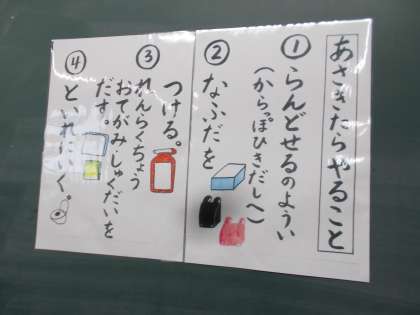 あさきたらやること
①らんどせるのようい
(からっぽひきだしへ)
②なふだを
つける。
③れんらくちょう
おてがみ・しゅくだいを
だす。
④といれにいく。